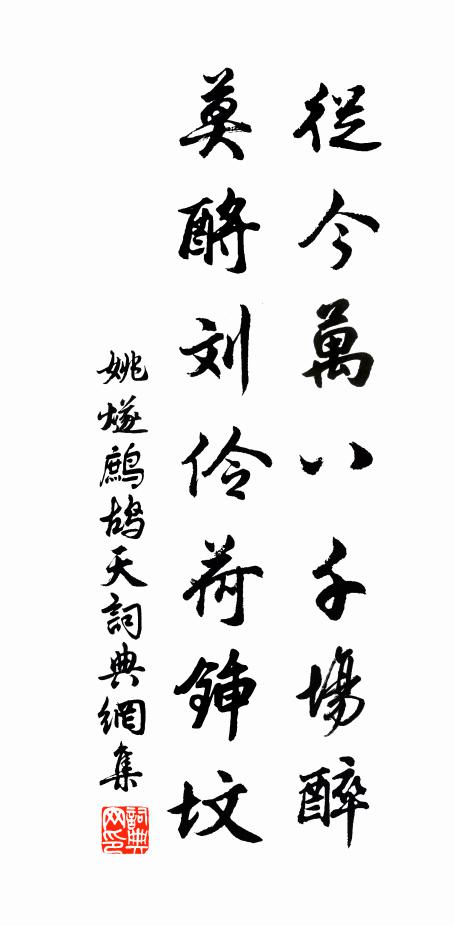 從今萬八千場醉
莫酹刘伶荷鍤坟
姚燧鷓鴣天詞典網集
詞典网印